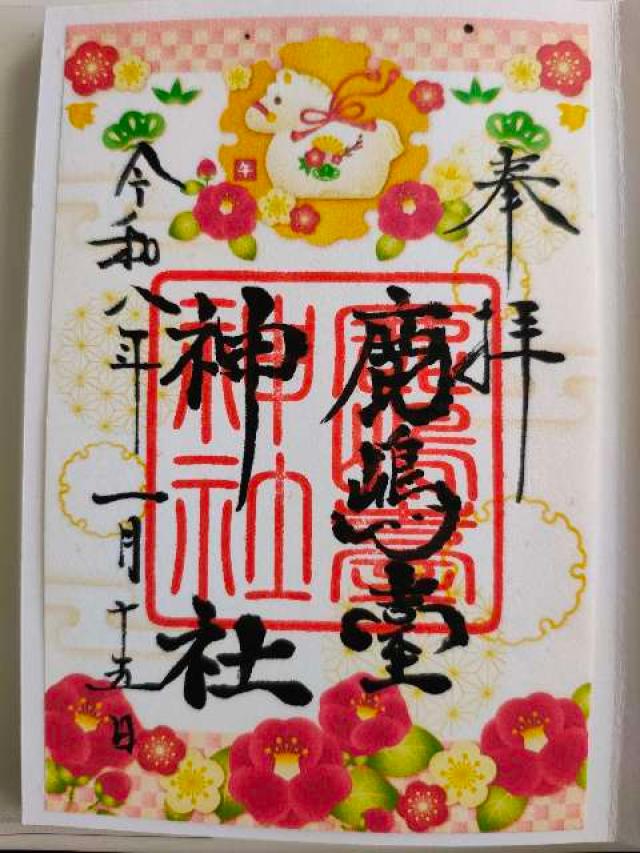 奉拝
鹿嶋臺
神社
令和八年一月十五日
午
鹿嶋臺
神社